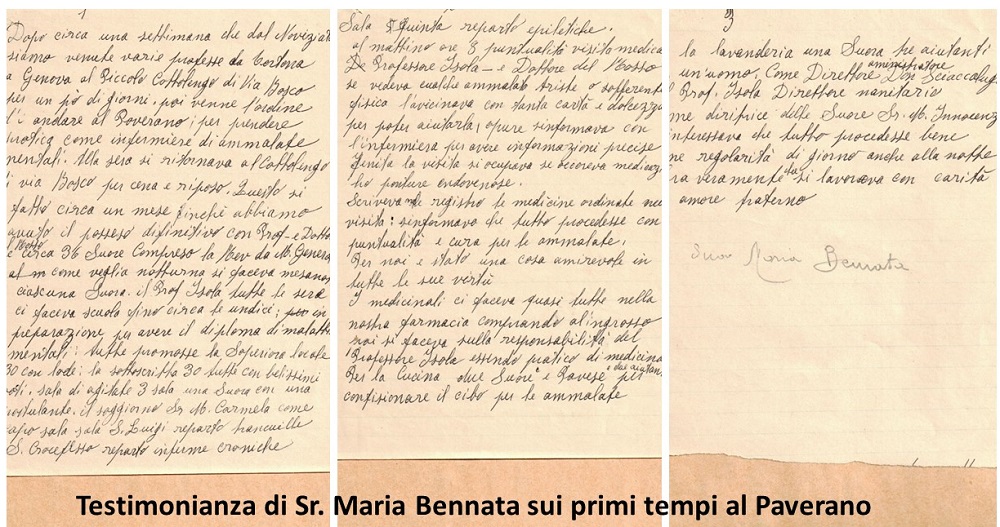 1
Dopo circa una settimana che dal Noviziat
siamo venute varie professe da Tortona
a Genova al Piccolo Cottolengo di Via Bosco
per un pò di giorni, poi venne l'ordine
d'i andare al Poverano; per prendere
pratica come infermiere di ammalate
mentali. Alla sera si ritornava al Cottolengo
i via Bosco per cena e riposo. Questo si
fatto circa un mese finchè abbiamo
avuto il possesso difinitivo con Prof. e Dotto
l Rosso
e circa 36 Suore Compreso la Rev. da M. Genera
al m come veglia notturna si faceva mezano
ciascuna Suora. il Prof Isola tutte le sere
ci faceva scuola fino circa le undici; in
preparazione per avere il diploma di malatt
mentali: tutte promosse la Superiora locale
30 con lode: la sottoscritta 30 tutte con belissimi
oti. sala di agitate 3 sala una Suora con una
postulante. il soggiorno Sr M. Carmela come
capo sala sala S. Luigi reparto tranquille
S. Crocefisso reparto inferme croniche
Sala Quinta reparto epilettiche.
al mattino ore 8 puntualità visita medica
Professore Isola – e Dottore del Rosso
se vedeva qualche ammalata triste o sofferent
fisica l'avicinava con tanta carità e dolcezza
per poter aiutarla, opure sinformava con
l'infermiera per avere informazioni precise
Finita la visita si ocupava se occoreva medicazi
ho punture endovenose.
Scriveva registro le medicine ordinate nu
visita: sinformava che tutto procedesse con
puntualità e cura per le ammalate.
Per noi e stato una cosa amirevole in
tutte le sue virtù
I medicinali ci faceva quasi tutte nella
nostra farmacia comprando al'ingrosso
noi si faceva sulla responsabilità del
Professore Isola essendo pratico di medicina
Per la Cucina due Suore e Pavese due aiutan per
confisionare il cibo per le ammalate
3
la lavanderia una Suora tre aiutanti
un'uomo, Come Direttore amministratore Don Sciaccalug
Prof. Isola Direttore sanitario
me dirigice delle Suore Sr. M. Innocenz
interessava che tutto procedesse bene
ne regolarità di giorno anche alla notte
ra veramente si lavorava con carità
amore fraterno
Suor Maria Bennata
Testimonianza di Sr. Maria Bennata sui primi tempi al Paverano